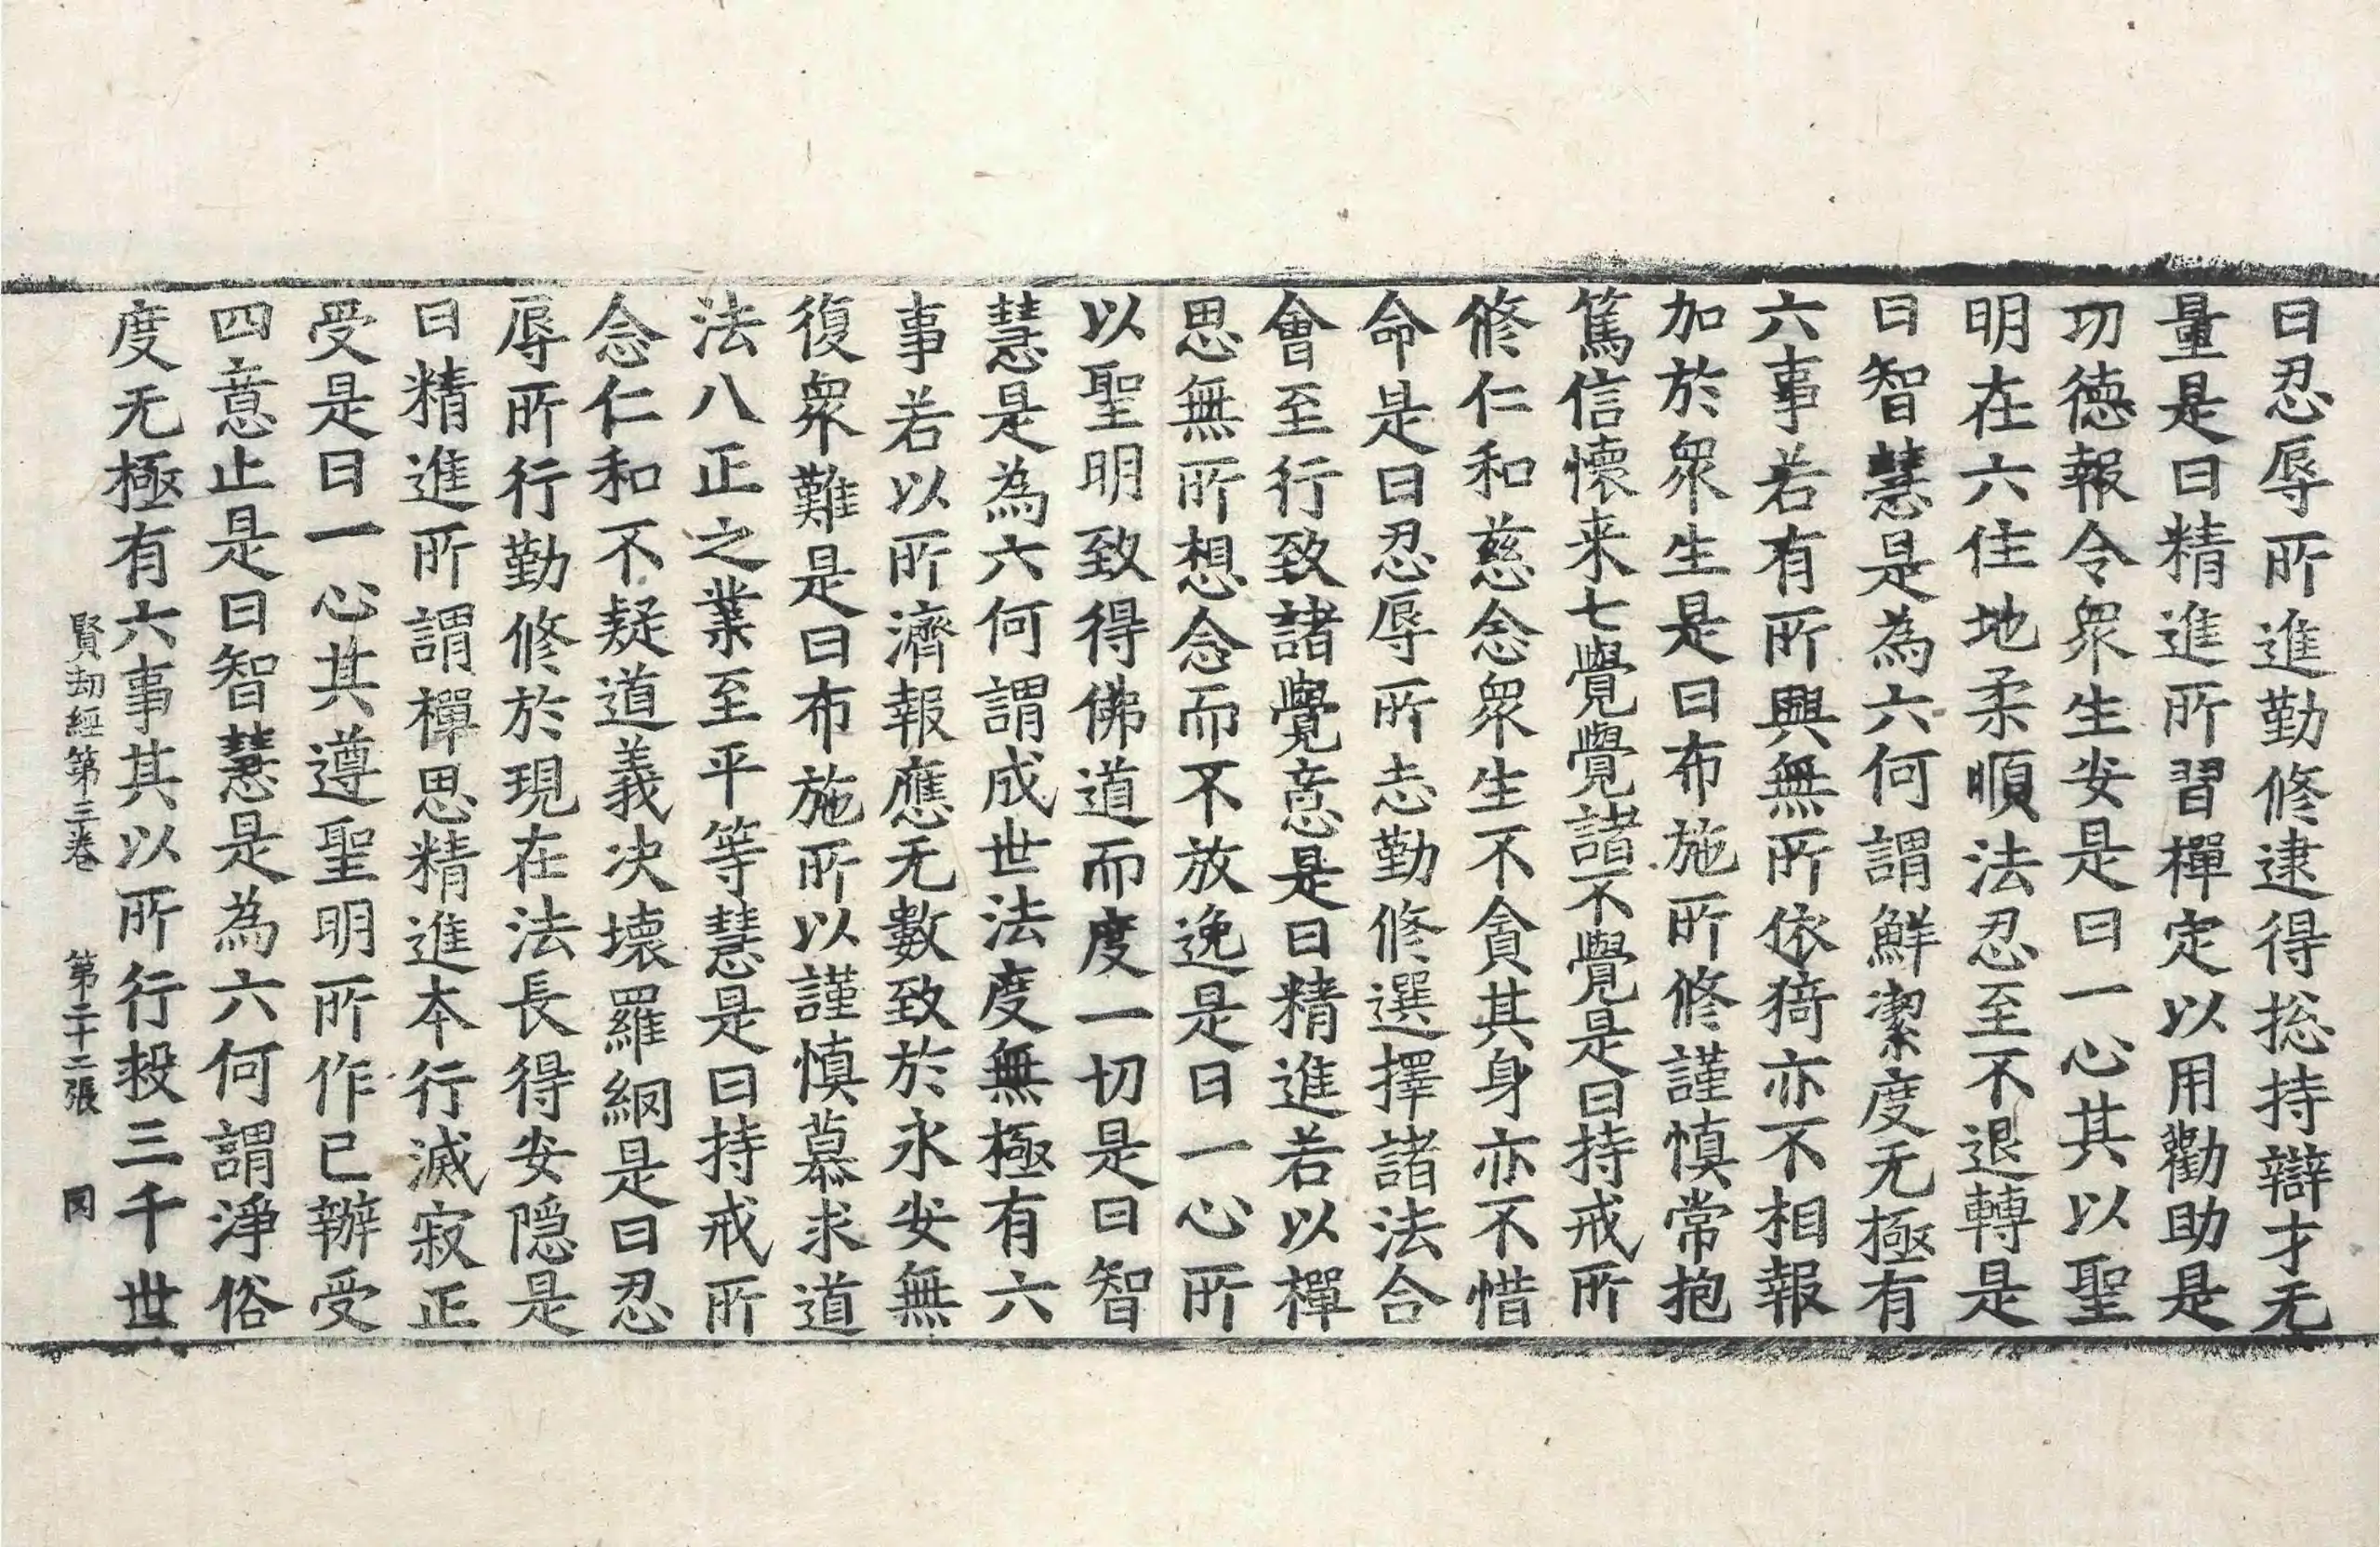 曰忍辱所進勤修逮得揔持辯才无
量是曰精進所習禪定以用勸助是
功德報令衆生安是曰一心其以聖
明在六住地柔順法忍至不退轉是
曰智慧是為六何謂鮮潔度无極有
六事若有所興無所依猗亦不相報
加於衆生是曰布施所修謹慎常抱
篤信懷来七覺覺諸不覺是曰持戒所
修仁和慈念衆生不貪其身亦不惜
命是曰忍辱所志勤修選擇諸法合
會至行致諸覺意是曰精進若以禪
思無所想念而不放逸是曰一心所
以聖明致得佛道而度一切是曰智
慧是為六何謂成世法度無極有六
事若以所濟報應无數致於永安無
復衆難是曰布施所以謹慎慕求道
法八正之業至平等慧是曰持戒所
念仁和不疑道義决壞羅網是曰忍
辱所行勤修於現在法長得安隱是
曰精進所謂禪思精進本行滅寂正
受是曰一心其遵聖明所作已辦受
四意止是曰智慧是為六何謂淨俗
度无極有六事其以所行投三千世
賢劫經第三卷 第二十二張 罔